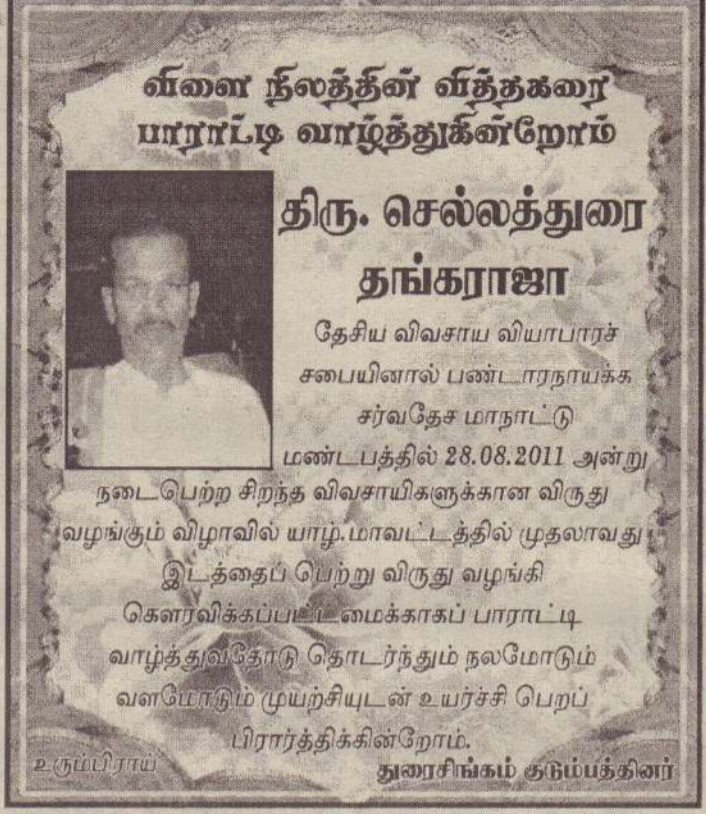 விளை நிலத்தின் வித்தகரை
பாராட்டி வாழ்த்துகின்றோம்
திரு. செல்லத்துரை
தங்கராஜா
தேசிய விவசாய வியாபாரச்
சபையினால் பண்டாரநாயக்க
சர்வதேச மாநாட்டு
மண்டபத்தில் 28.08.2011 அன்று
நடைபெற்ற சிறந்த விவசாயிகளுக்கான விருது
வழங்கும் விழாவில் யாழ்.மாவட்டத்தில் முதலாவது
இடத்தைப் பெற்று விருது வழங்கி
கௌரவிக்கப்பட்டமைக்காகப் பாராட்டி
வாழ்த்துவதோடு தொடர்ந்தும் நலமோடும்
வளமோடும் முயற்சியுடன் உயர்ச்சி பெறப்
பிரார்த்திக்கின்றோம்.
உரும்பிராய்
துரைசிங்கம் குடும்பத்தினர்